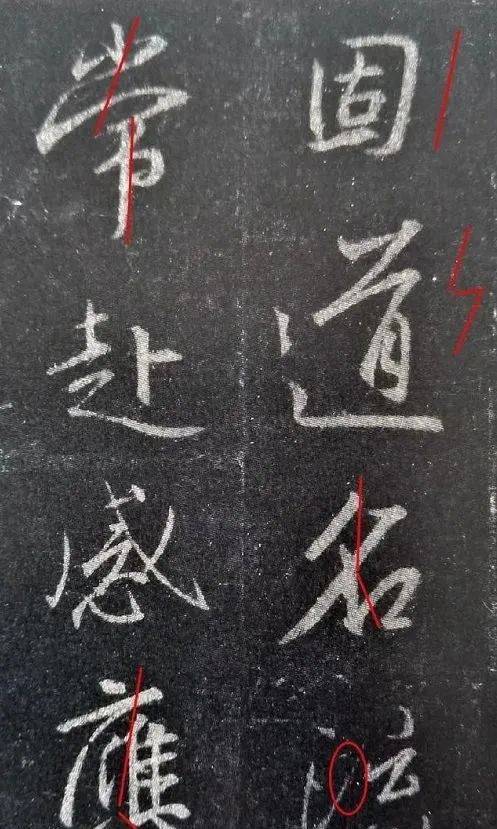 固道名
常赴感應